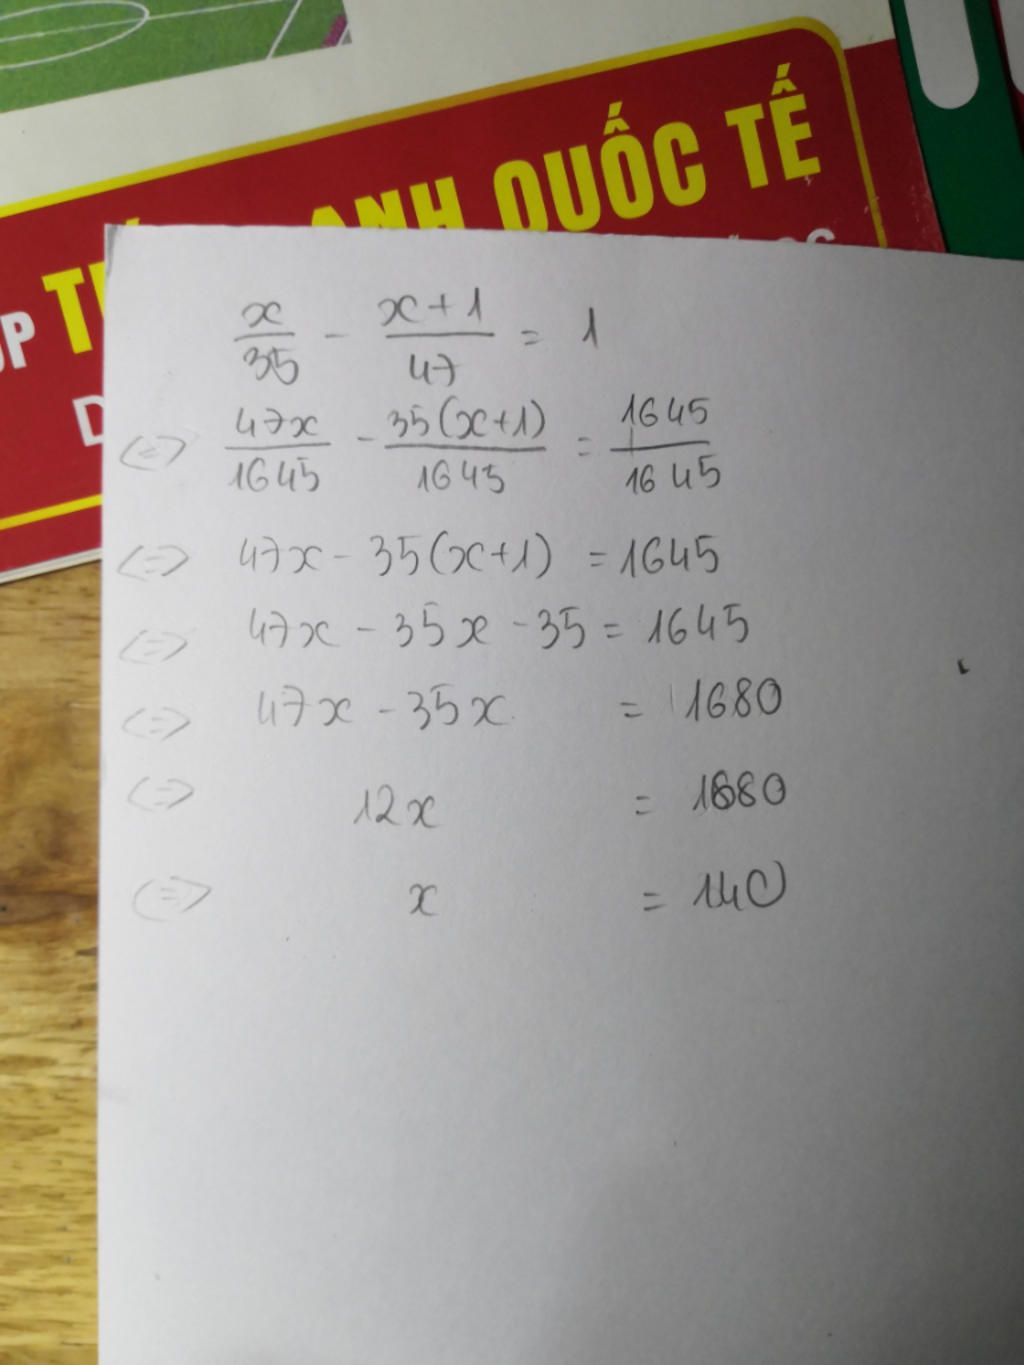 ANH QUỐC TẾ
x/35 - x+1/47 = 1
<=> 47x/1645 - 35(x+1)/1645 = 1645/1645
<=> 47x - 35(x+1) = 1645
<=> 47x - 35x - 35 = 1645
<=> 47x - 35x = 1680
<=> 12x = 1680
<=> x = 140